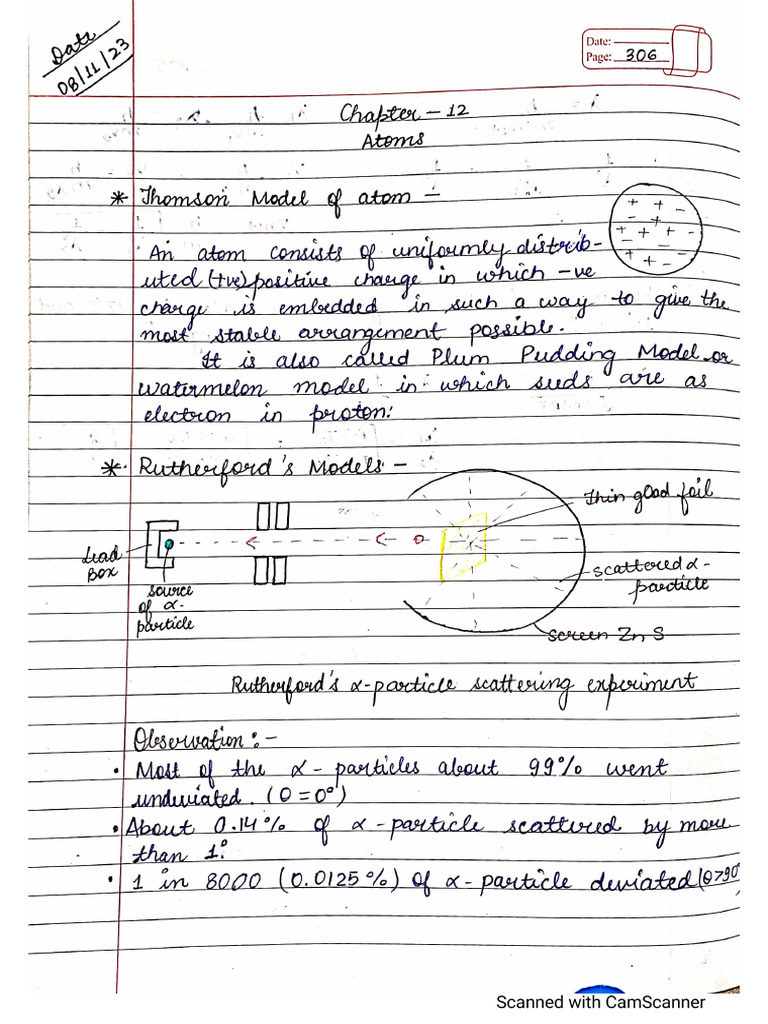 Date
08/11/23
Date:
Page: 306
Chapter - 12
Atoms
* Thomson Model of atom -
An atom consists of uniformly distrib-
uted (+ve) positive charge in which -ve
charge is embedded in such a way to give the
most stable arrangement possible.
It is also called Plum Pudding Model or
watermelon model in which seeds are as
electron in proton.
* Rutherford's Models -
Thin gold foil
Lead
Box
source
of α-
particle
scattered α-
particle
screen Zn S
Rutherford's α-particle scattering experiment
Observation :-
• Most of the α - particles about 99% went
undeviated. (θ = 0°)
• About 0.14% of α - particle scattered by more
than 1°.
• 1 in 8000 (0.0125%) of α - particle deviated (θ>90°
Scanned with CamScanner